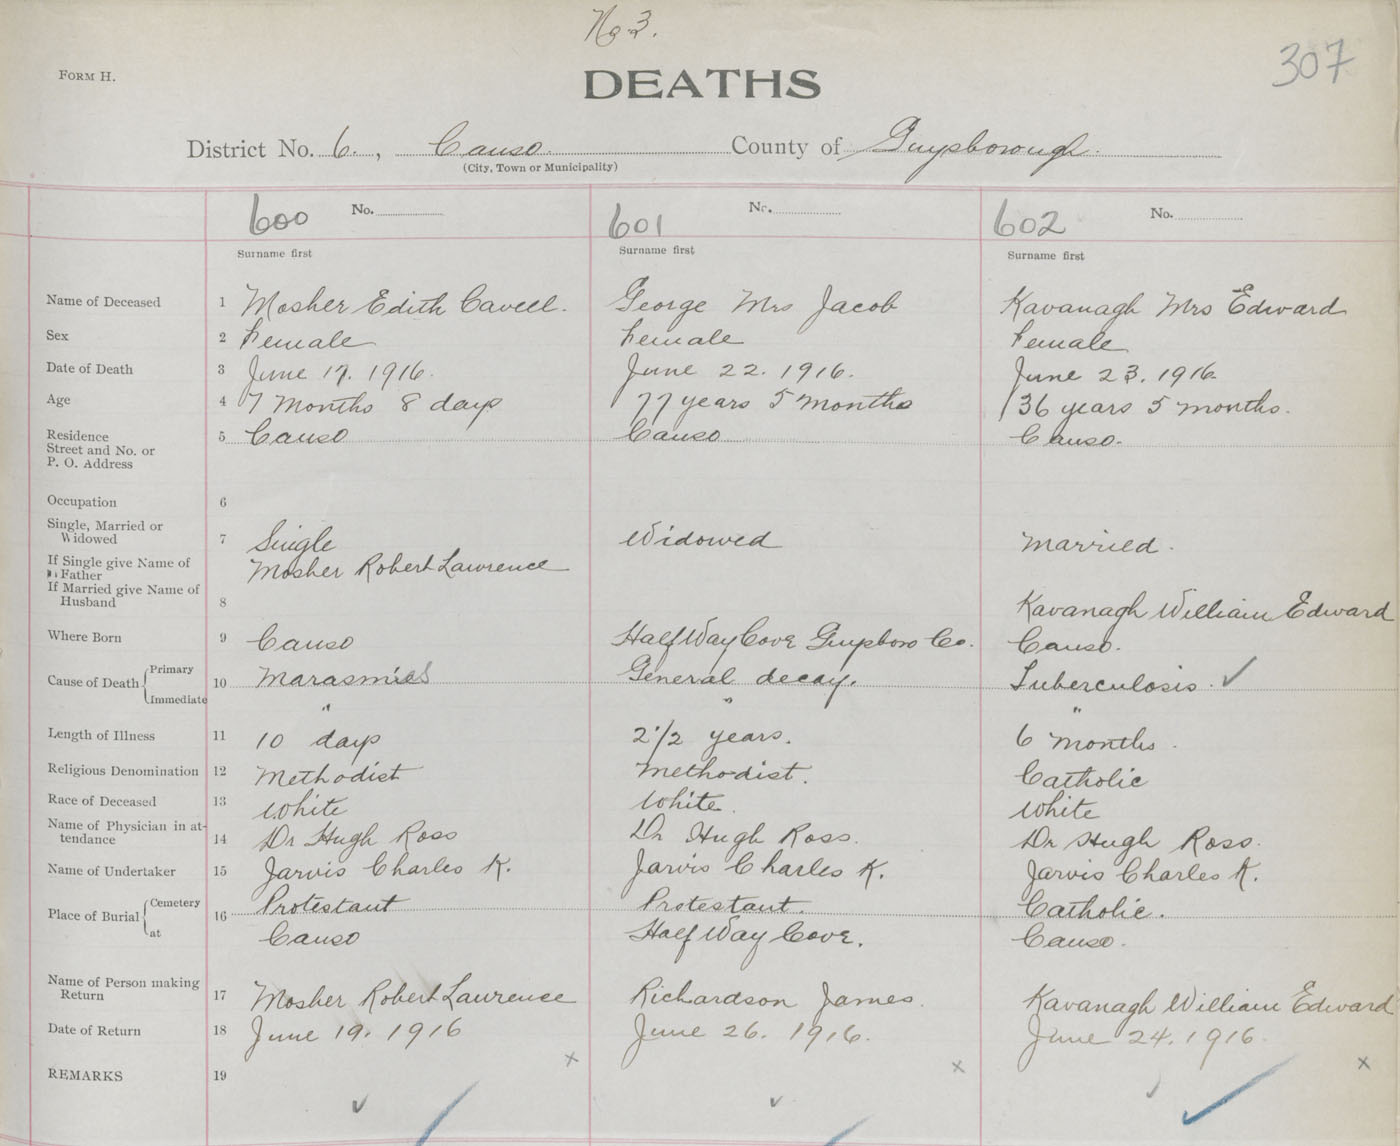 No 3.
307
FORM H.
DEATHS
District No. 6, Canso County of Guysborough.
(City, Town or Municipality)
600 No. 601 No. 602 No.
Surname first Surname first Surname first
Name of Deceased 1 Mosher Edith Cavell. George Mrs Jacob Kavanagh Mrs Edward
Sex 2 Female Female Female
Date of Death 3 June 17. 1916. June 22. 1916. June 23. 1916.
Age 4 7 Months 8 days 77 years 5 months 36 years 5 months.
Residence 5 Canso Canso Canso.
Street and No. or
P. O. Address
Occupation 6
Single, Married or
Widowed 7 Single Widowed Married.
If Single give Name of
Father Mosher Robert Lawrence
If Married give Name of
Husband 8 Kavanagh William Edward
Where Born 9 Canso Half Way Cove Guysboro Co. Canso.
Cause of Death Primary 10 Marasmus General decay. Tuberculosis. ✓
Immediate " " "
Length of Illness 11 10 days 2 1/2 years. 6 months.
Religious Denomination 12 Methodist Methodist. Catholic
Race of Deceased 13 White White. White
Name of Physician in at-
tendance 14 Dr Hugh Ross Dr Hugh Ross. Dr Hugh Ross.
Name of Undertaker 15 Jarvis Charles K. Jarvis Charles K. Jarvis Charles K.
Place of Burial Cemetery 16 Protestant Protestant. Catholic.
at Canso Half Way Cove. Canso.
Name of Person making
Return 17 Mosher Robert Lawrence Richardson James. Kavanagh William Edward
Date of Return 18 June 19. 1916 June 26. 1916. June 24. 1916.
x x x
REMARKS 19
✓ ✓ ✓